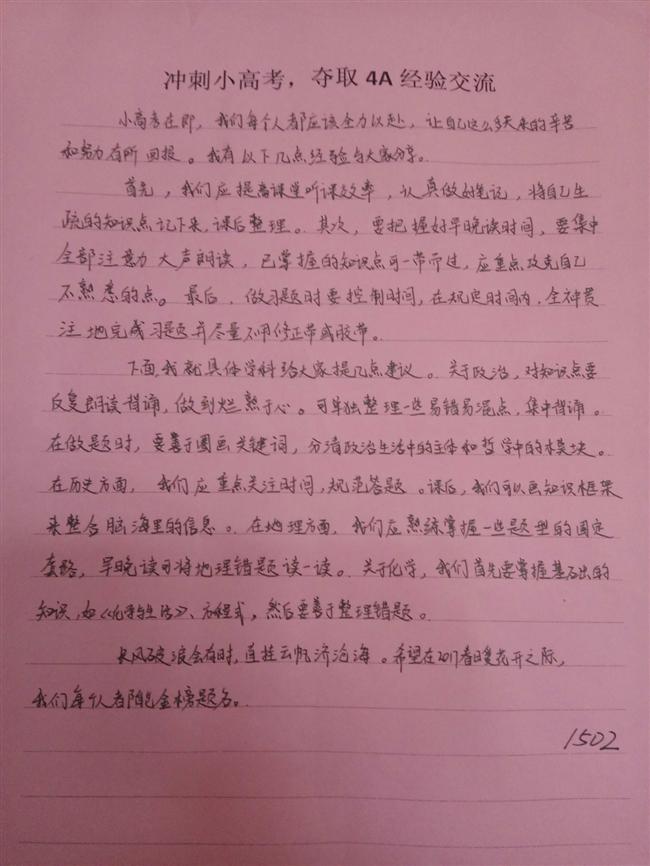 冲刺小高考，夺取 4A 经验交流
小高考在即，我们每个人都应该全力以赴，让自己这么多天来的辛苦
和努力有所回报。我有以下几点经验与大家分享。
首先，我们应提高课堂听课效率，认真做好笔记，将自己生
疏的知识点记下来，课后整理。其次，要把握好早晚读时间，要集中
全部注意力大声朗读，已掌握的知识点可一带而过，应重点攻克自己
不熟悉的点。最后，做习题时要控制时间，在规定时间内，全神贯
注地完成习题并尽量不用修正带或胶带。
下面，我就具体学科给大家提几点建议。关于政治，对知识点要
反复朗读背诵，做到烂熟于心。可单独整理一些易错易混点，集中背诵。
在做题时，要善于圈画关键词，分清政治生活中的主体和哲学中的模块。
在历史方面，我们应重点关注时间，规范答题。课后，我们可以画知识框架
来整合脑海里的信息。在地理方面，我们应熟练掌握一些题型的固定
套路，早晚读可将地理错题读一读。关于化学，我们首先要掌握基础的
知识，如《化学与生活》、方程式，然后要善于整理错题。
长风破浪会有时，直挂云帆济沧海。希望在2017春暖花开之际，
我们每个人都能金榜题名。
1502